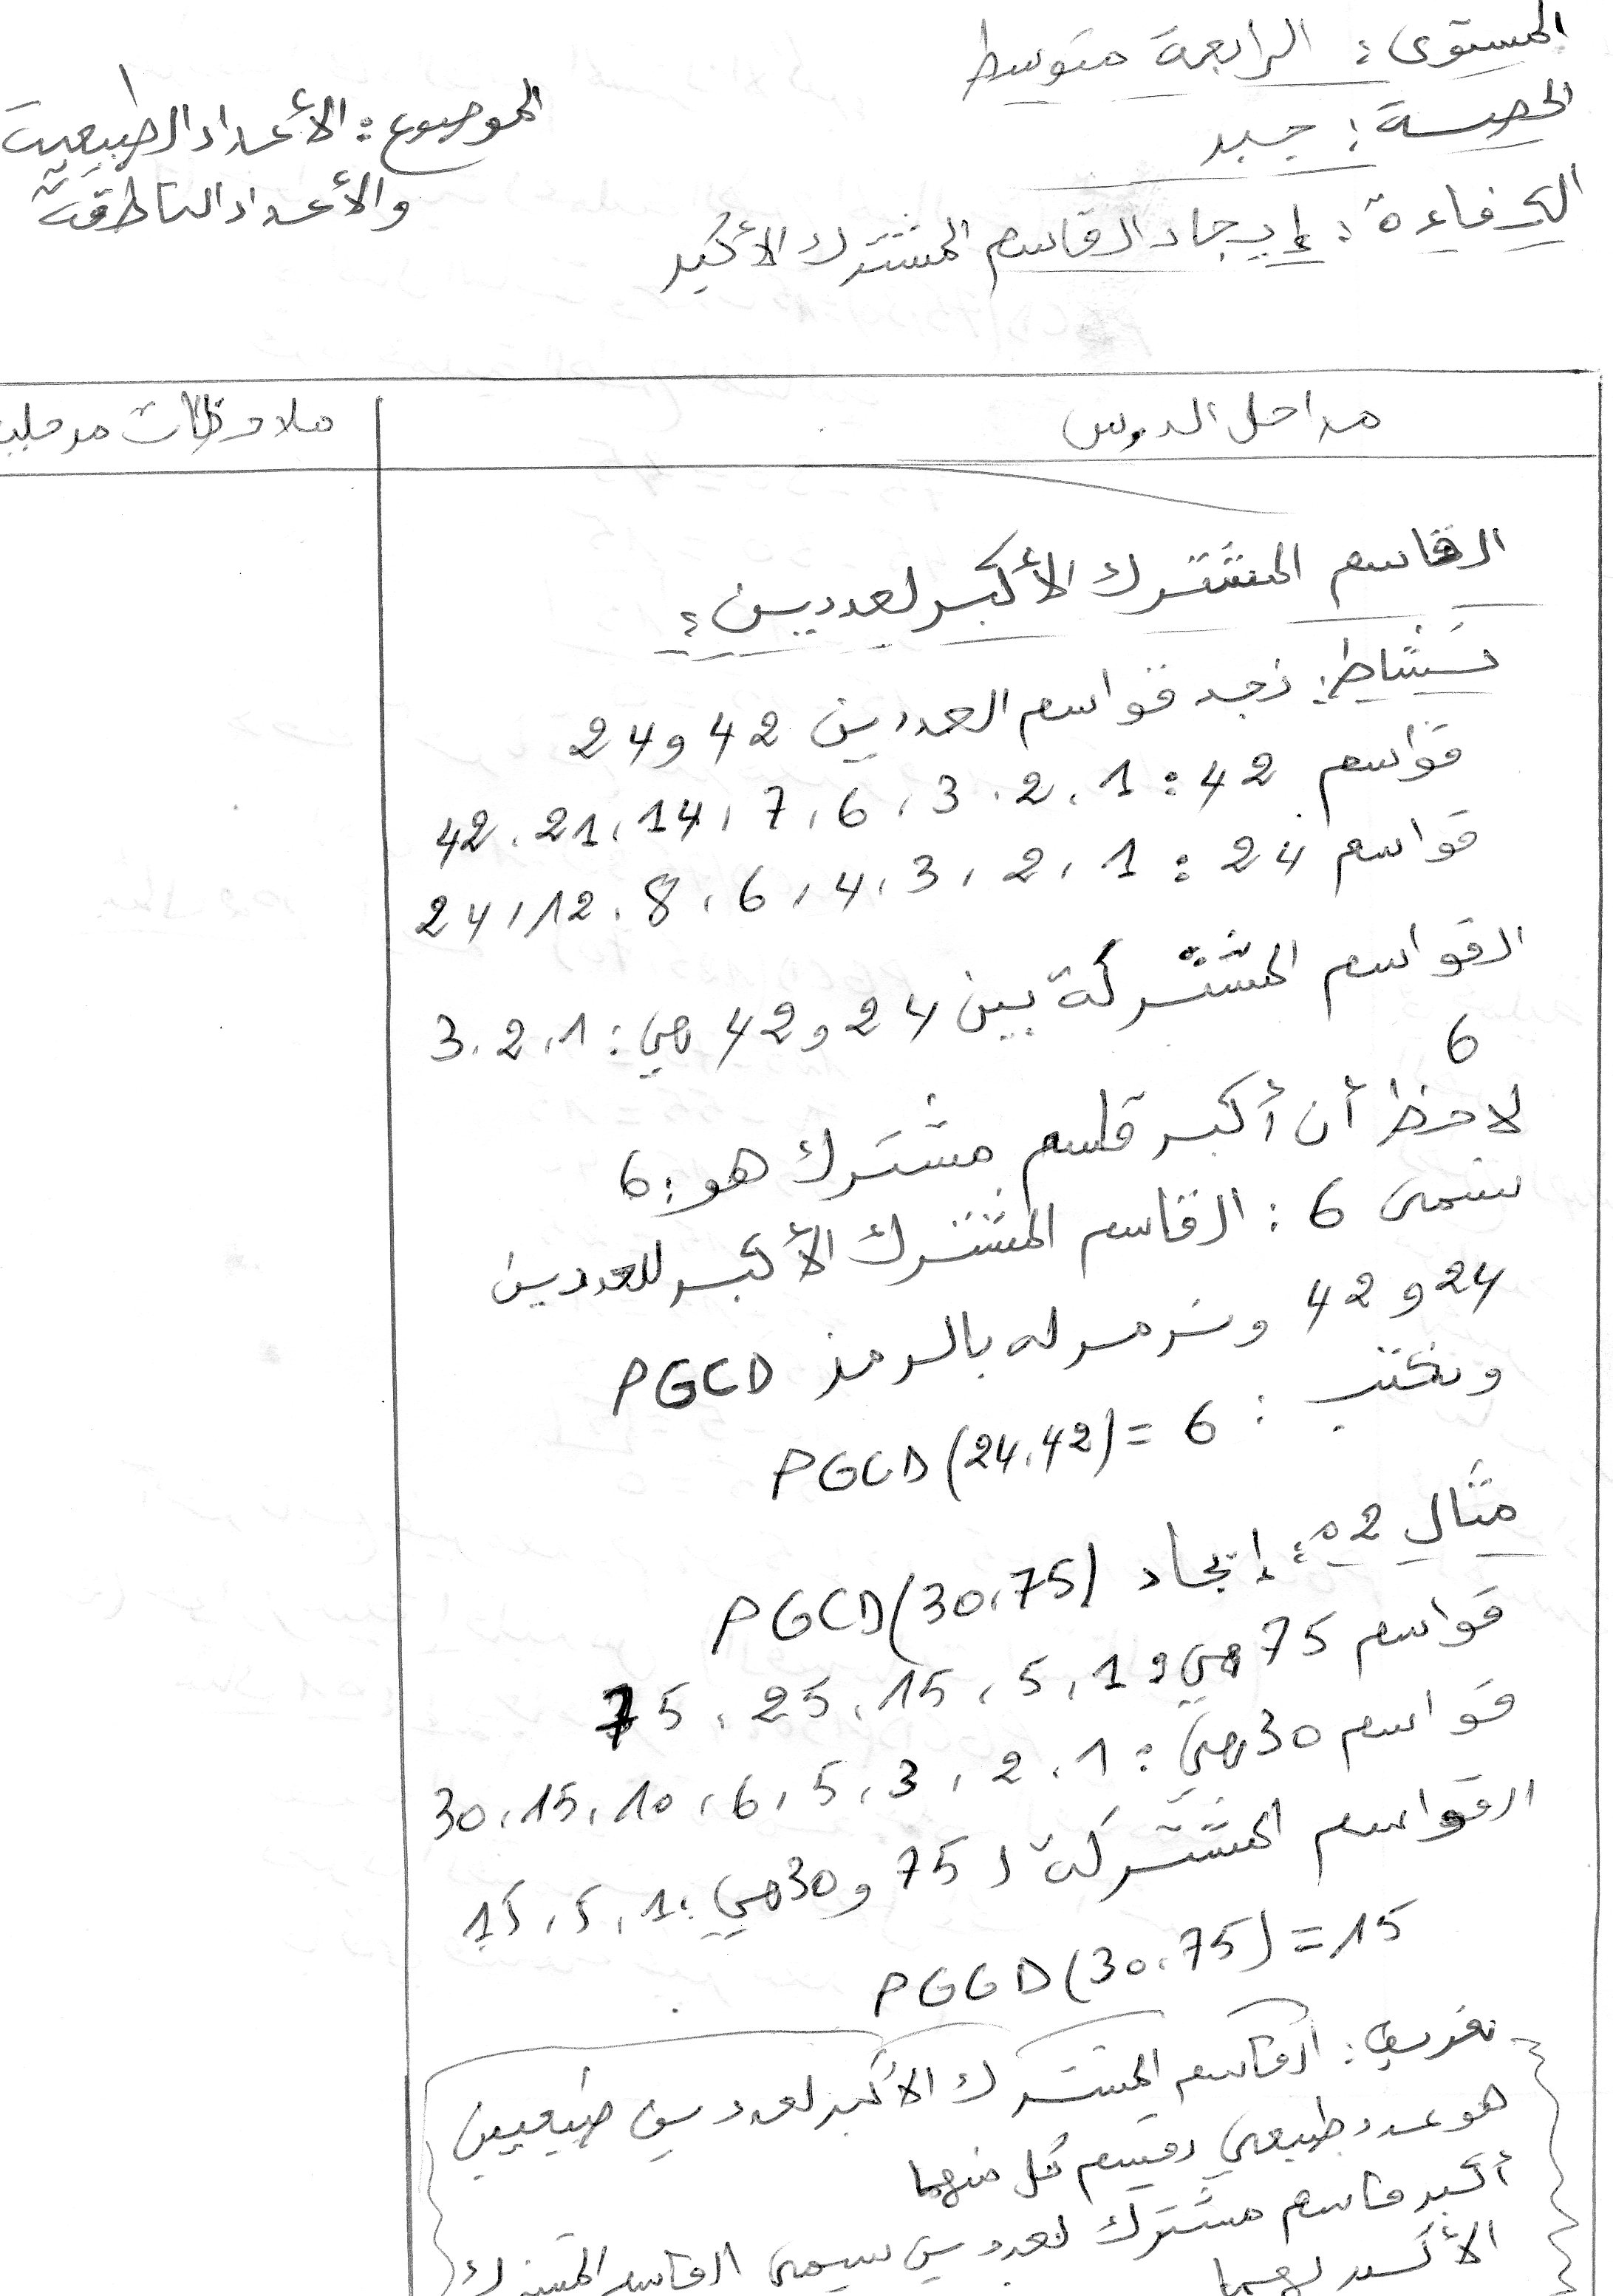 المستوى : الرابعة متوسط
الحصة : جبر
الموضوع : الأعداد الطبيعية
والأعداد الناطقة
الكفاءة : إيجاد القاسم المشترك الأكبر
مراحل الدرس
ملاحظات مرحلية
القاسم المشترك الأكبر لعددين :
نشاط: نجد قواسم العددين 42 و 24
قواسم 42 : 1 ، 2 ، 3 ، 6 ، 7 ، 14 ، 21 ، 42
قواسم 24 : 1 ، 2 ، 3 ، 4 ، 6 ، 8 ، 12 ، 24
القواسم المشتركة بين 24 و 42 هي : 1 ، 2 ، 3
6
لاحظ أن أكبر قاسم مشترك هو : 6
نسمى 6 : القاسم المشترك الأكبر للعددين
24 و 42 ونرمز له بالرمز PGCD
ونكتب :
PGCD (24 ، 42) = 6
مثال 02 : إيجاد PGCD (30 ، 75)
قواسم 75 هي : 1 ، 5 ، 15 ، 25 ، 75
قواسم 30 هي : 1 ، 2 ، 3 ، 5 ، 6 ، 10 ، 15 ، 30
القواسم المشتركة لـ 75 و 30 هي : 1 ، 5 ، 15
PGGD (30 ، 75) = 15
تعريف : القاسم المشترك الأكبر لعددين طبيعيين
هو عدد طبيعي يقسم كل منهما
أكبر قاسم مشترك لعددين يسمى القاسم المشترك
الأكبر لهما